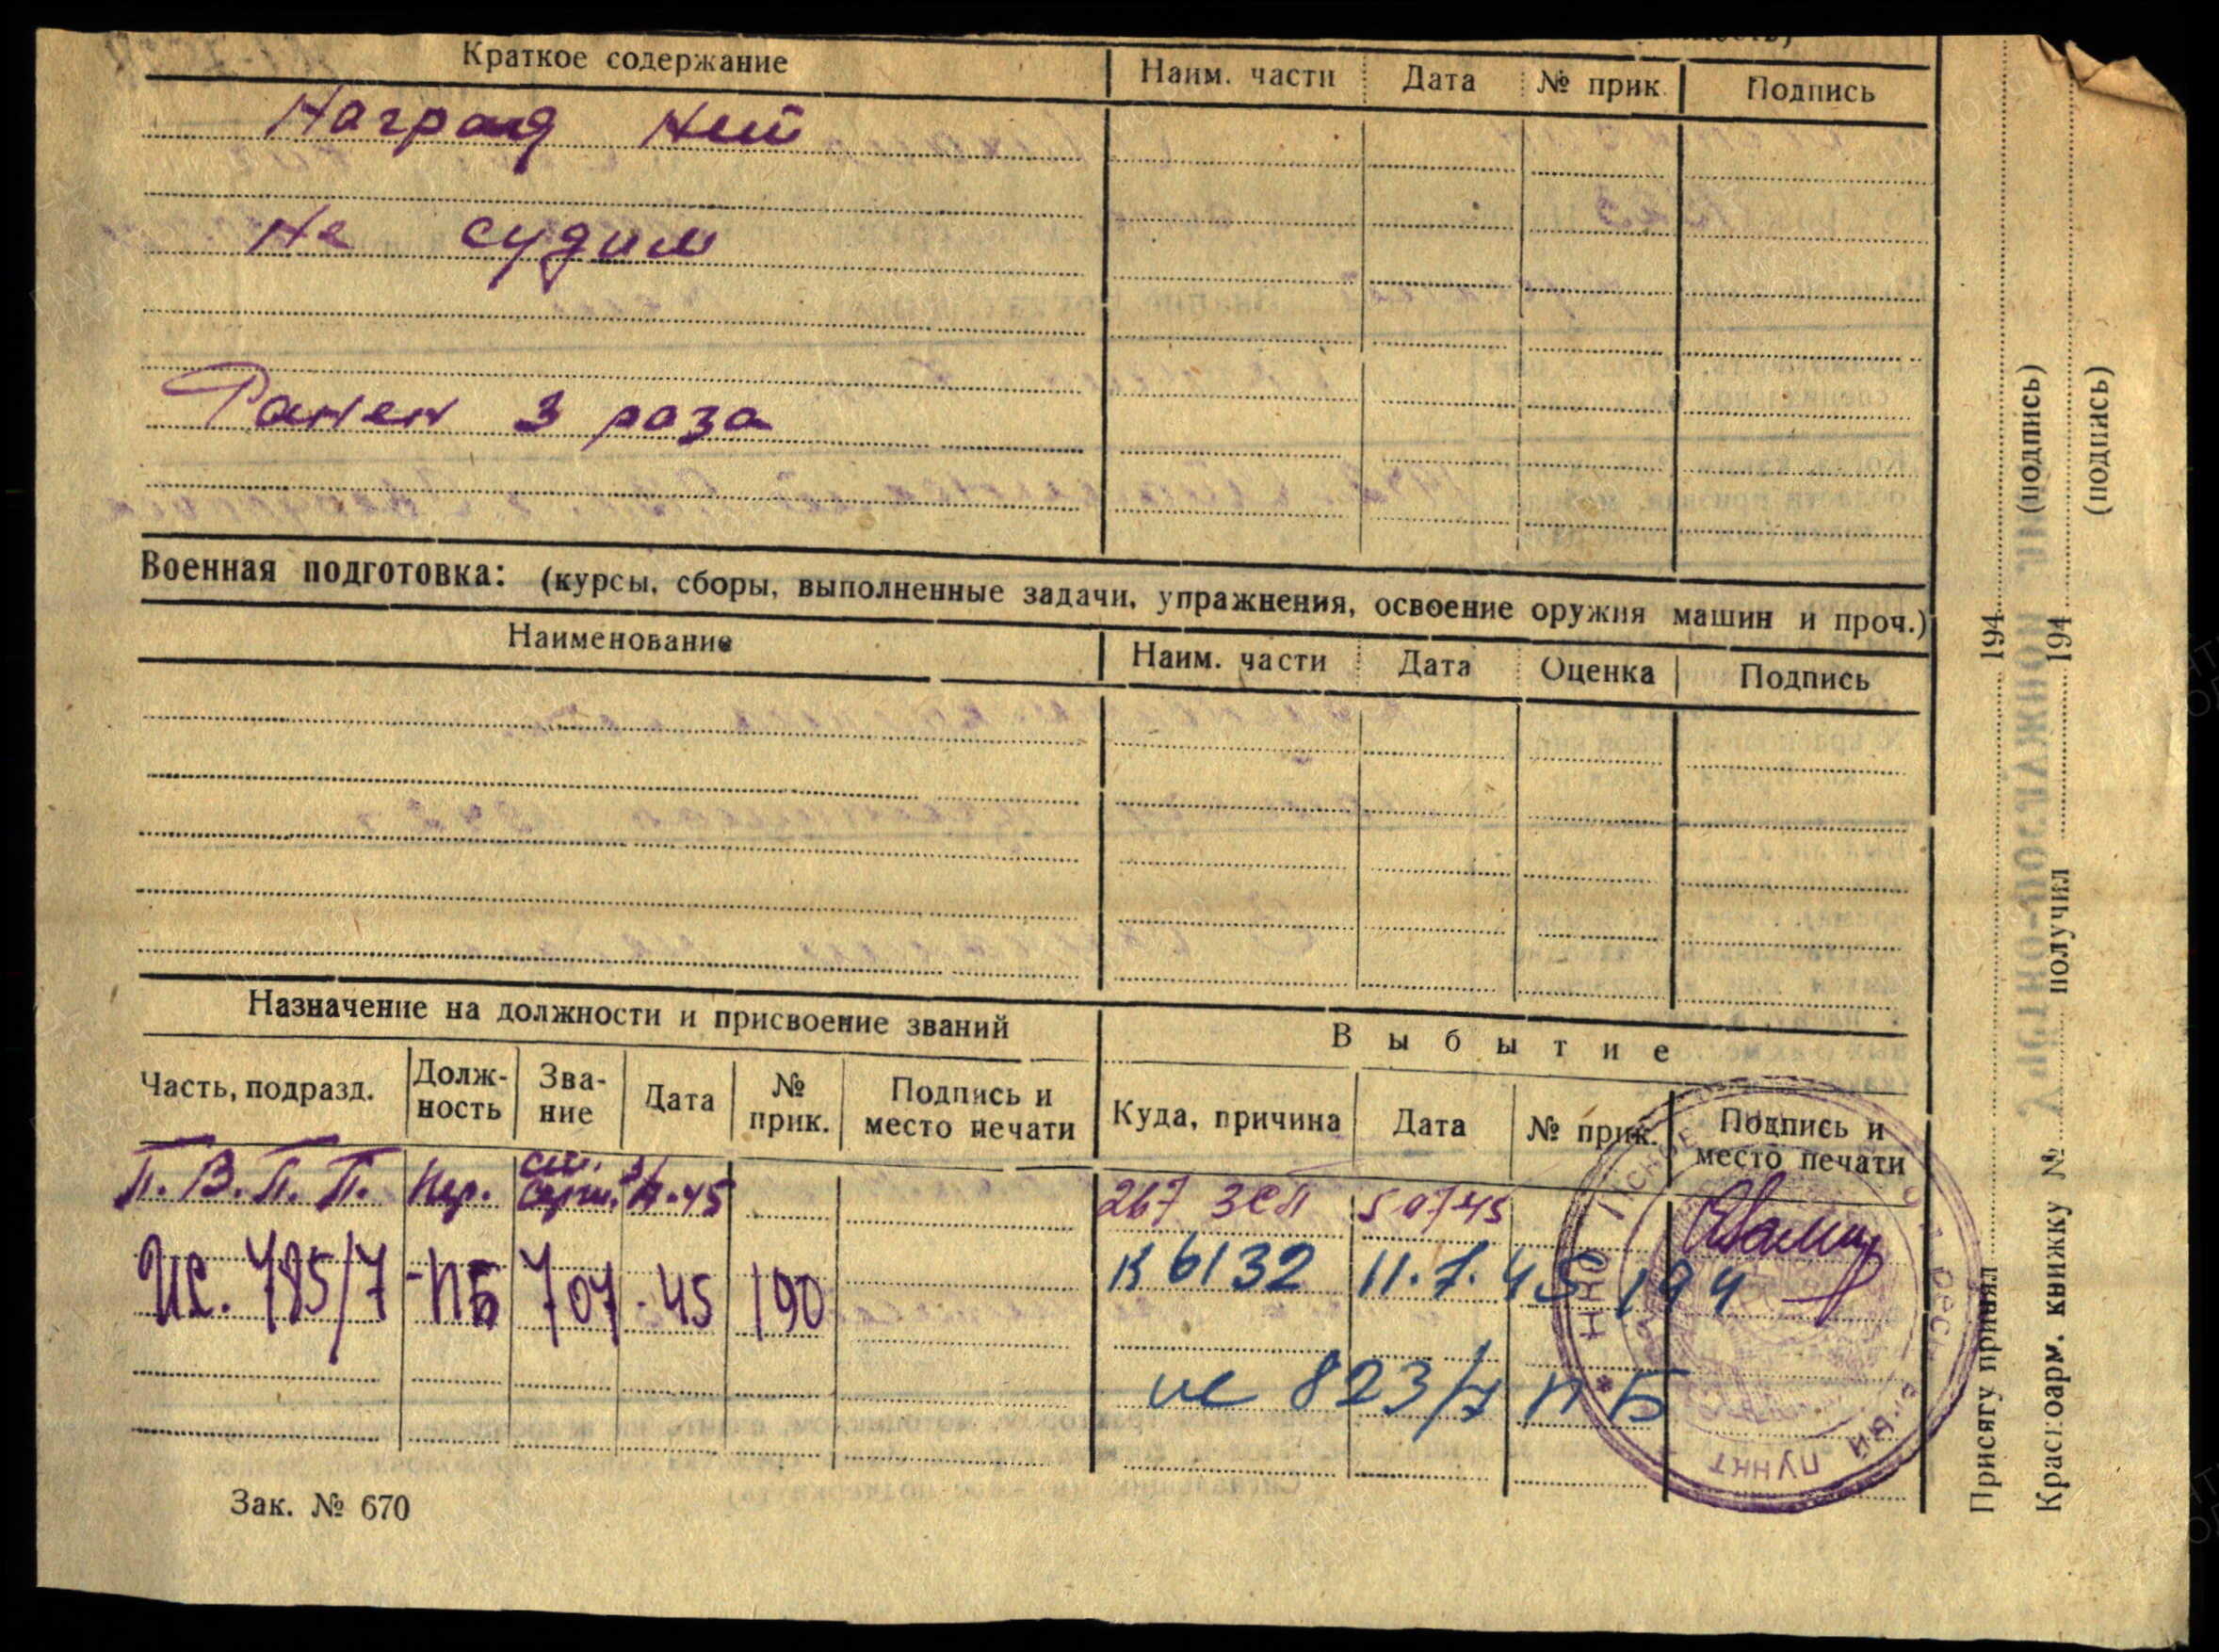 Краткое содержание Наим. части Дата № прик. Подпись
Наград Нет
Не судим
Ранен 3 раза
Военная подготовка: (курсы, сборы, выполненные задачи, упражнения, освоение оружия машин и проч.)
Наименование Наим. части Дата Оценка Подпись
Назначение на должности и присвоение званий
Выбытие
Часть, подразд. Долж-ность Зва-ние Дата № прик. Подпись и место печати
Куда, причина Дата № прик. Подпись и место печати
П. В. П. П. пер. ст. серж. 45
267 ЗСП 5 07 45
Ис. 785/7 -ПБ 707-45 190
В 6132 11.7.45 194
ис 823/7 ПБ
ПУНКТ
Зак. № 670
Присягу принял 194 (подпись)
Красноарм. книжку № получил 194 (подпись)